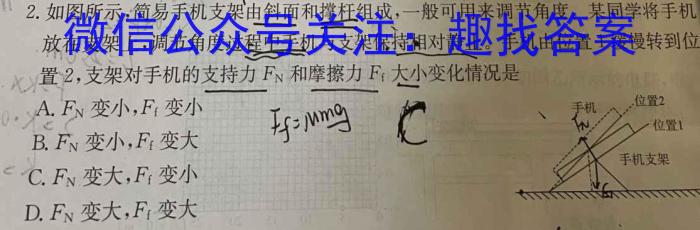 2. 如图所示,简易手机支架由斜面和撑杆组成,一般可用来调节角度。某同学将手机
微信公众号关注：趣找答案
放在支架上,调节角度过程中手机与支架保持相对静止。手机由位置1缓慢转到位
置2,支架对手机的支持力 FN 和摩擦力 Ff 大小变化情况是
A. FN 变小,Ff 变小
B. FN 变小,Ff 变大
C. FN 变大,Ff 变小
D. FN 变大,Ff 变大
Ff=μmg
C
手机
位置2
位置1
手机支架
FN